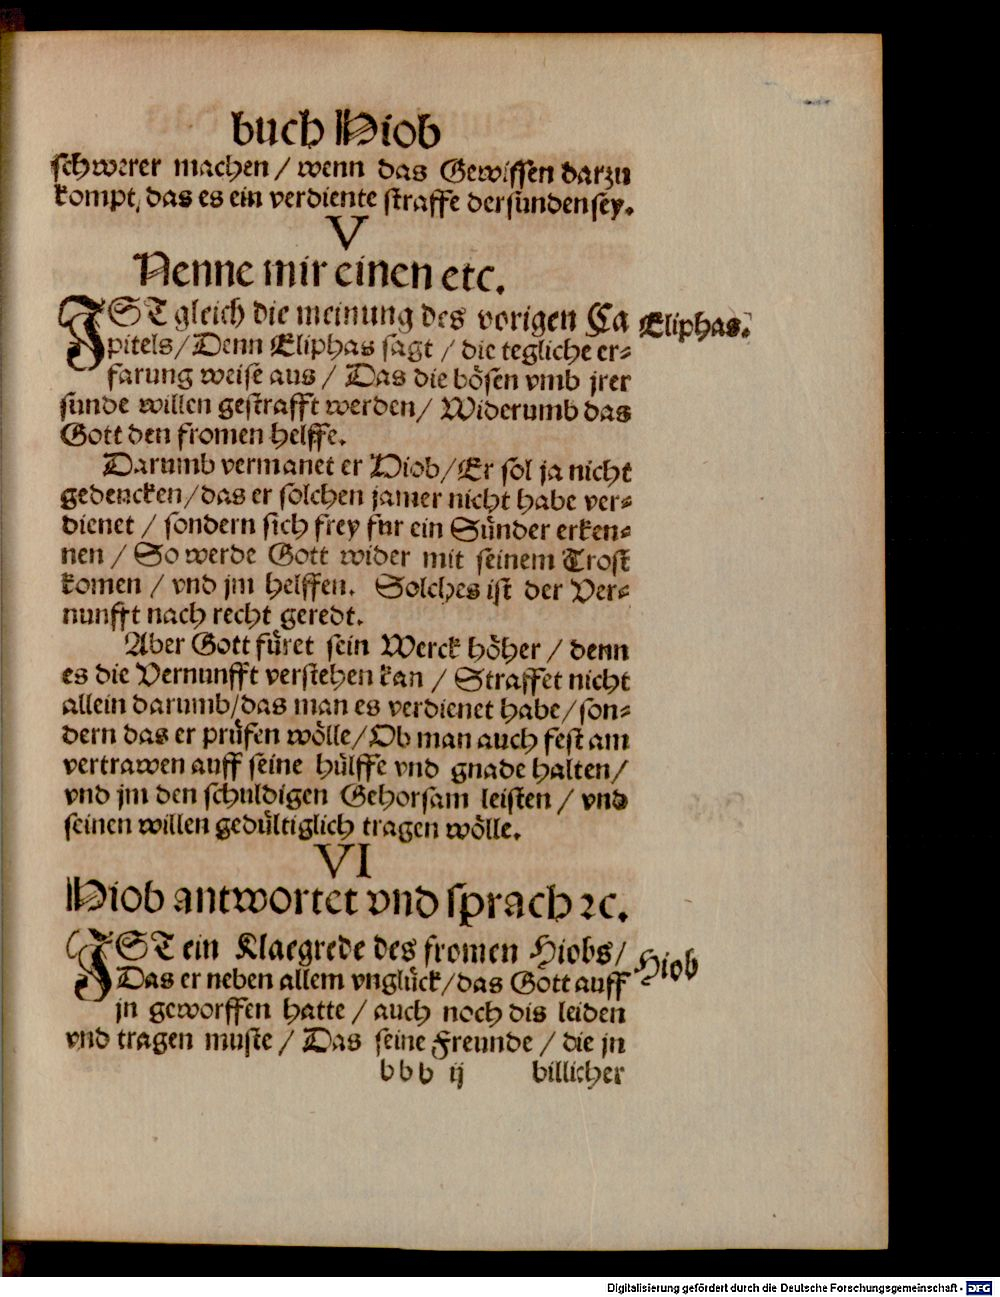 buch Hiob
schwerer machen / wenn das Gewissen darzu
kompt, das es ein verdiente straffe der sunden sey.
V
Nenne mir einen etc.
JST gleich die meinung des vorigen Ca
Eliphas.
pitels / Denn Eliphas sagt / die tegliche er⸗
farung weise aus / Das die bösen vmb jrer
sunde willen gestrafft werden / Widerumb das
Gott den fromen helffe.
Darumb vermanet er Hiob / Er sol ja nicht
gedencken / das er solchen jamer nicht habe ver⸗
dienet / sondern sich frey fur ein Sünder erken⸗
nen / So werde Gott wider mit seinem Trost
komen / vnd jm helffen. Solches ist der Ver⸗
nunfft nach recht geredt.
Aber Gott füret sein Werck höher / denn
es die Vernunfft verstehen kan / Straffet nicht
allein darumb / das man es verdienet habe / son⸗
dern das er prüfen wölle / Ob man auch fest am
vertrawen auff seine hülffe vnd gnade halten /
vnd jm den schuldigen Gehorsam leisten / vnd
seinen willen gedültiglich tragen wölle.
VI
Hiob antwortet vnd sprach ꝛc.
JST ein Klaegrede des fromen Hiobs /
Hiob
Das er neben allem vnglück / das Gott auff
jn geworffen hatte / auch noch dis leiden
vnd tragen muste / Das seine Freunde / die jn
bbb ij billicher
Digitalisierung gefördert durch die Deutsche Forschungsgemeinschaft - DFG